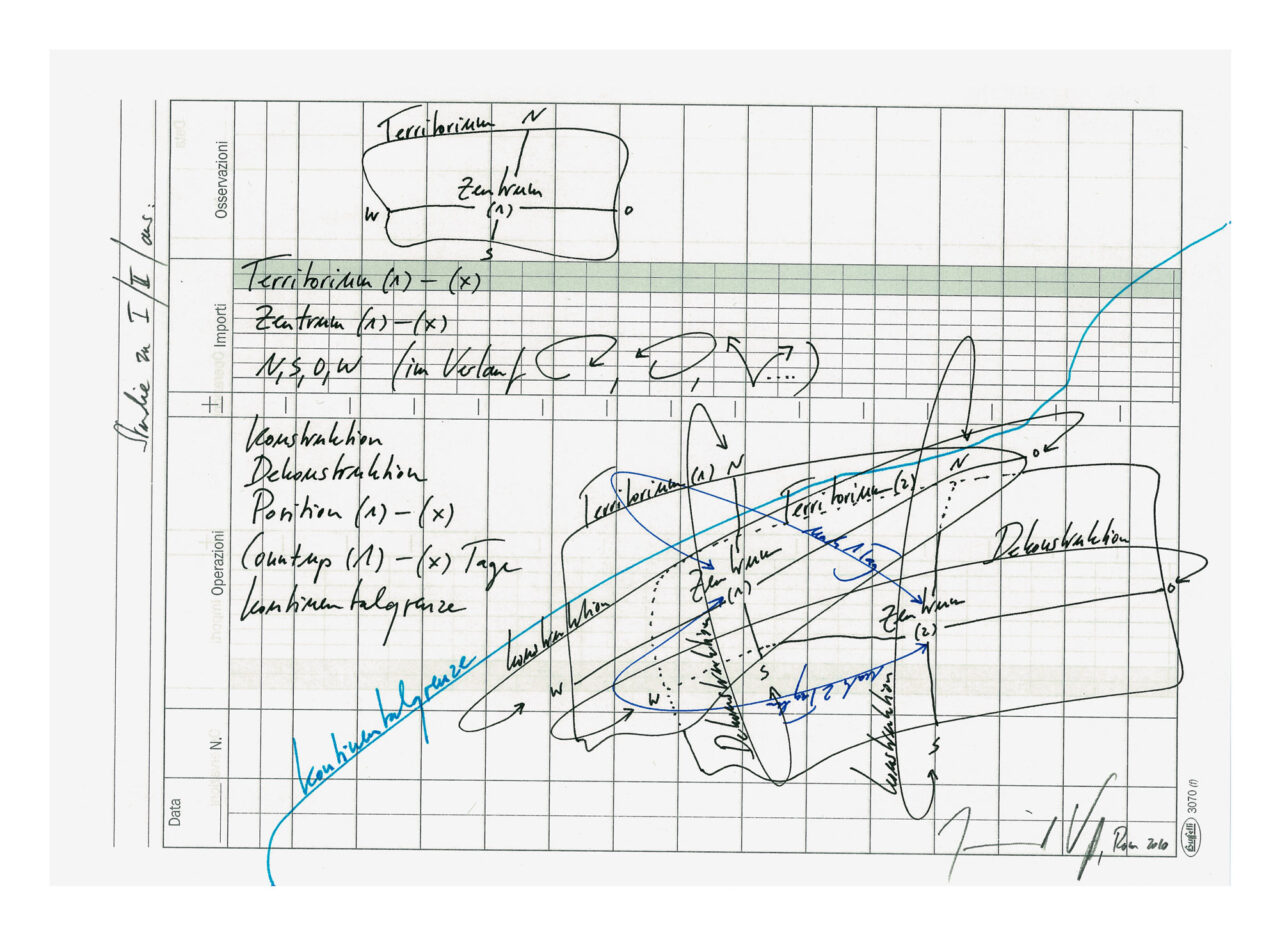 Territorium N
Zentrum
W (1) O
S
Territorium (1) – (x)
Zentrum (1) – (x)
N, S, O, W (im Verlauf , , ....)
Konstruktion
Dekonstruktion
Position (1) – (x)
Countup (1) – (x) Tage
Kontinentalgrenze
Territorium (1) N
Territorium (2) N O
Dekonstruktion
Zentrum
(1)
Zentrum
(2)
O
Konstruktion
Dekonstruktion
Konstruktion
W
W
S
S
nach 1 Tag
Kontinentalgrenze
Rom 2010
Studie zu I/II/aus.
Data
N.
Operazioni
Importi
Osservazioni
Data
Buffetti 3070